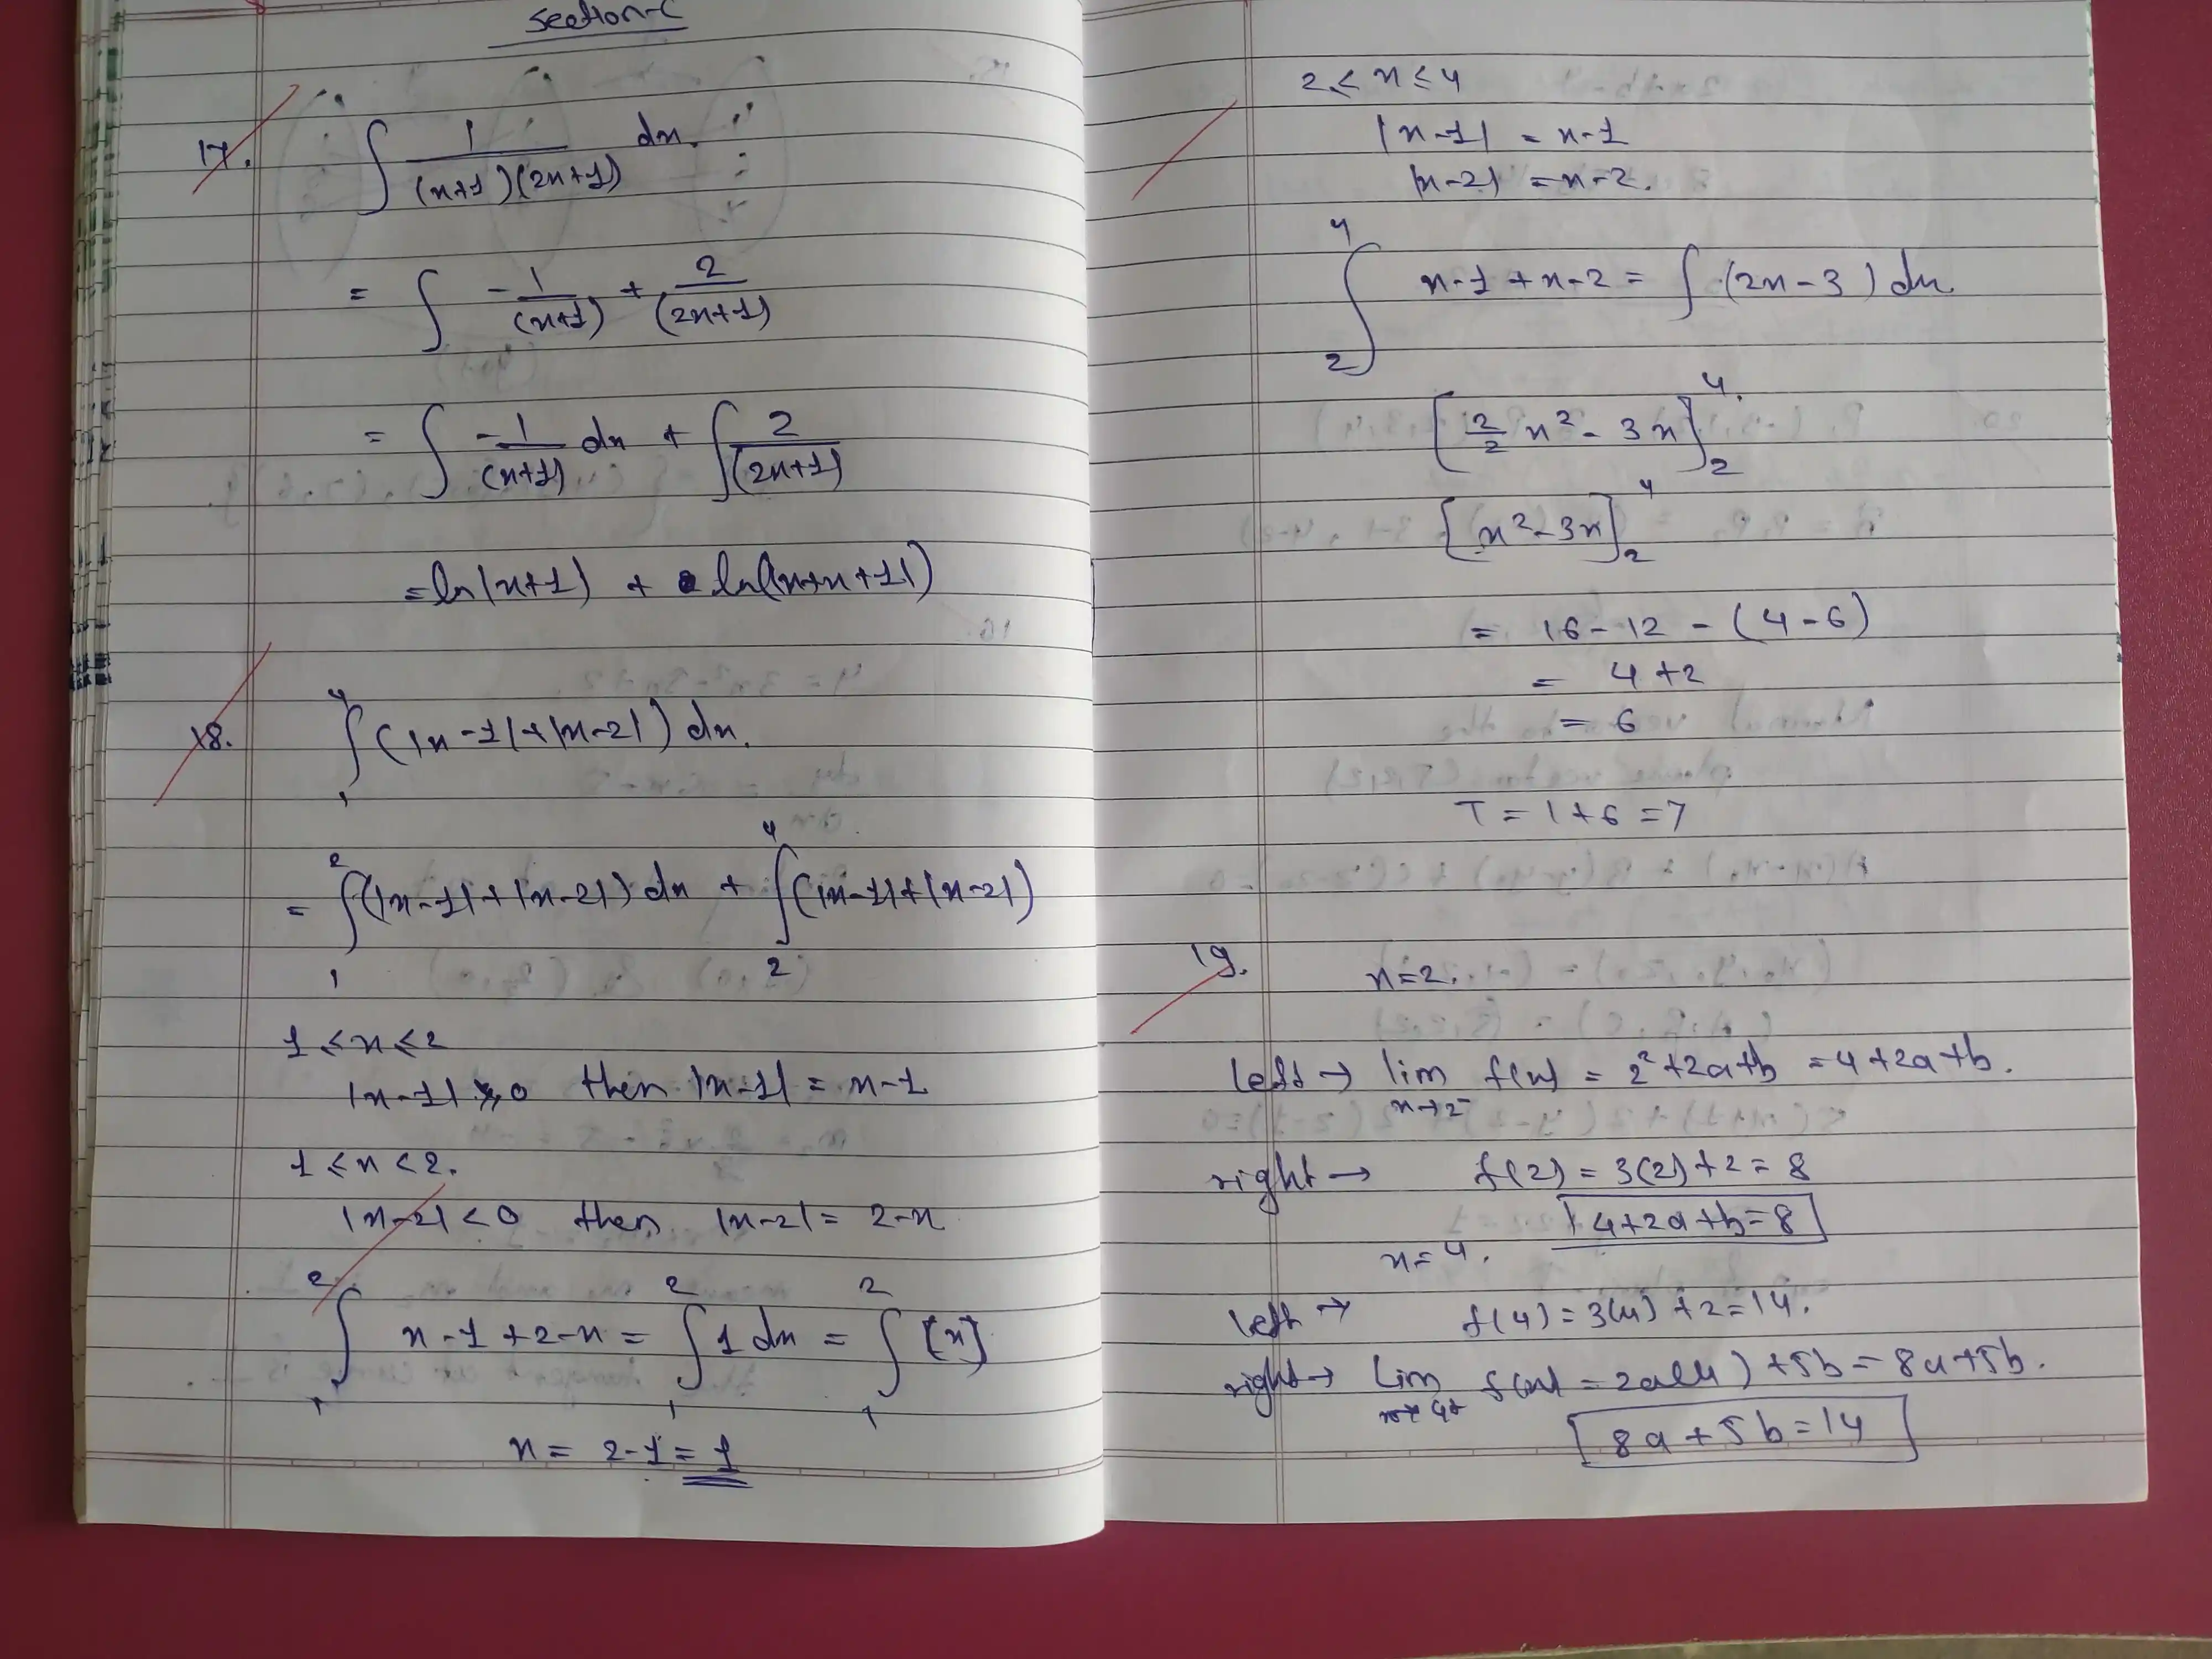 Section-C
17. ∫ 1/((x+1)(2x+1)) dx.
= ∫ -1/(x+1) + 2/(2x+1)
= ∫ -1/(x+1) dx + ∫ 2/(2x+1)
= ln|x+1| +
18. ∫₁⁴ (|x-1|+|x-2|) dx.
= ∫₁² (|x-1|+|x-2|) dx + ∫₂⁴ (|x-1|+|x-2|)
1 ≤ x ≤ 2
|x-1| ≥ 0 then |x-1| = x-1
1 ≤ x < 2.
|x-2| < 0 then |x-2| = 2-x
∫₁² x-1+2-x = ∫₁² 1 dx = ∫₁² [x]
x = 2-1 = 1
2 ≤ x ≤ 4
|x-1| = x-1
|x-2| = x-2.
∫₂⁴ x-1+x-2 = ∫ (2x-3) dx
[2/2 x² - 3x]₂⁴.
[x² - 3x]₂⁴
= 16-12-(4-6)
= 4+2
= 6
T = 1+6 = 7
19. x=2.
left → lim x→2⁻ f(x) = 2²+2a+b = 4+2a+b.
right → f(2) = 3(2)+2 = 8
4+2a+b=8
x=4.
left → f(4) = 3(4)+2 = 14.
right → lim x→4+ f(x) = 2a(4)+5b = 8a+5b.
8a+5b=14